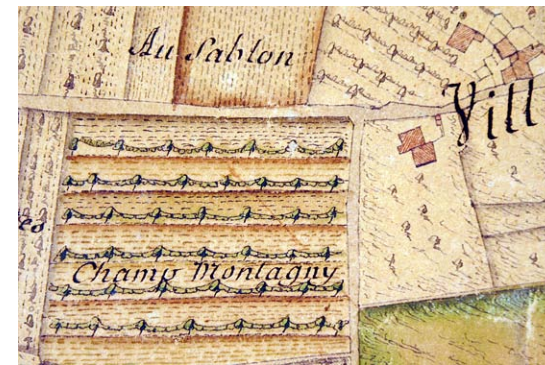 Au Sablon
Vill
es
Champ Montagny